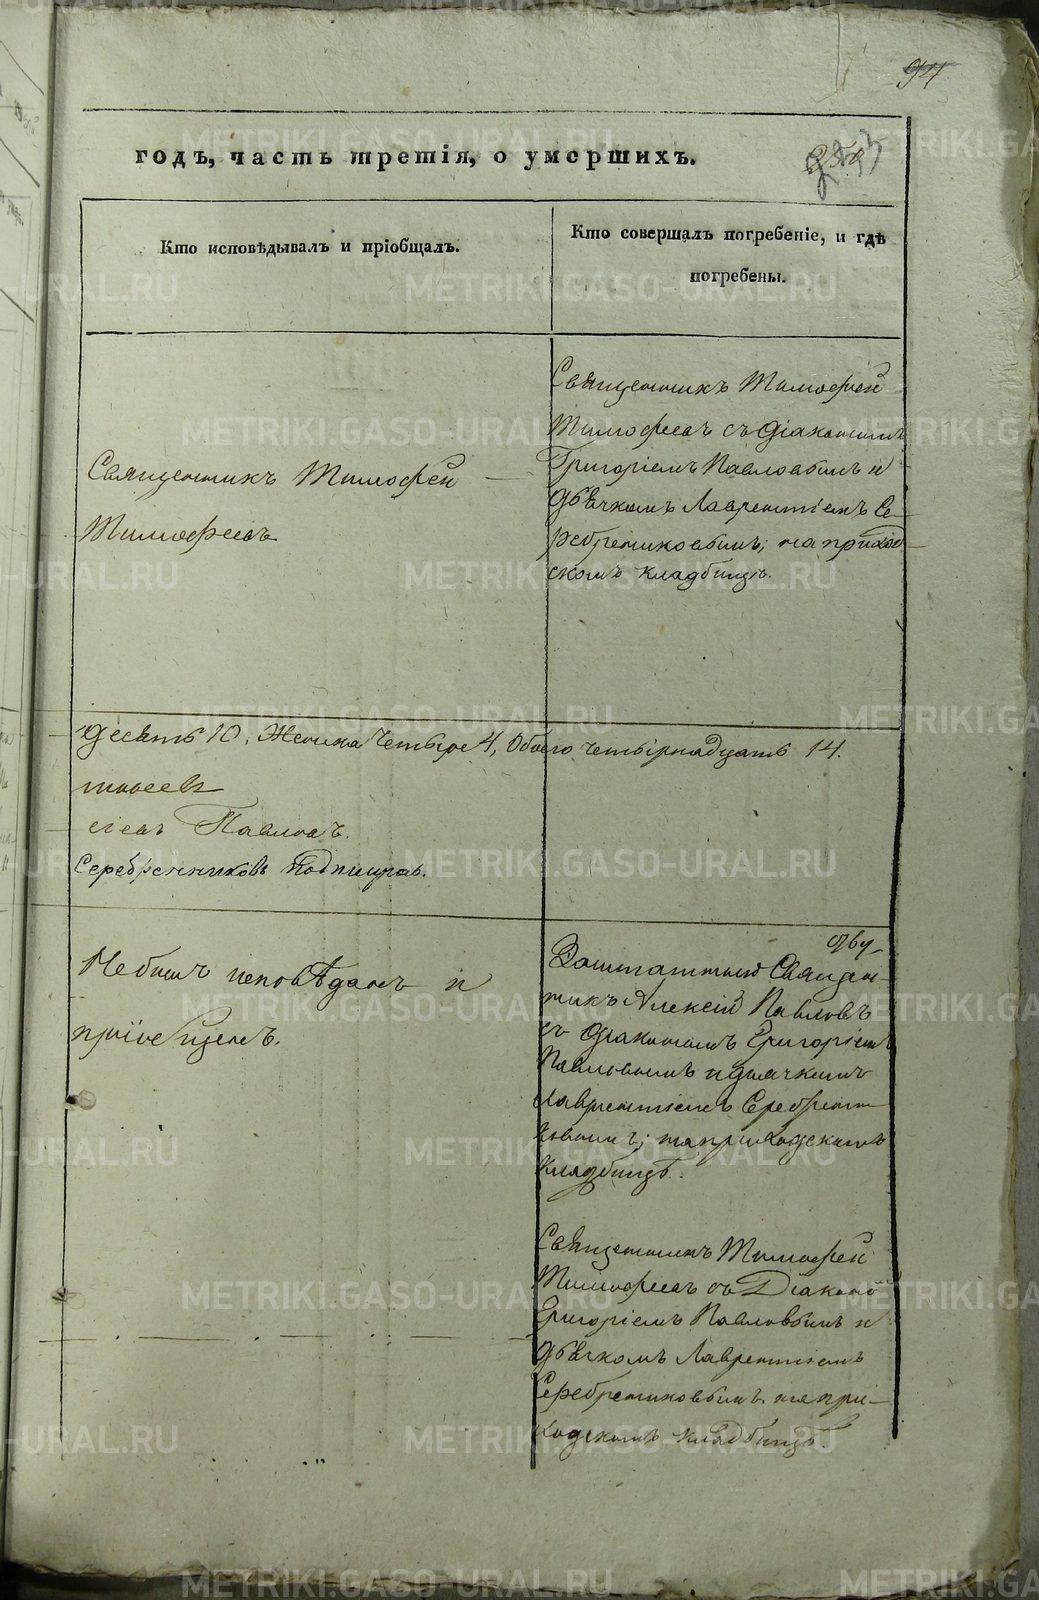 94
годъ, часть третія, о умершихъ.
Кто исповѣдывалъ и пріобщалъ.
Кто совершалъ погребеніе, и гдѣ
погребены.
Священникъ Тимофей
Тимофеевъ
Священникъ Тимофей
Тимофеевъ съ Діакономъ
Григоріемъ Павловымъ и
Дьячкомъ Лаврентіемъ Се-
ребрениковымъ; на приход
скомъ кладбищѣ.
десять 10, Женска Четыре 4, Обоего четырнадцать 14.
Павловъ.
Серебренниковъ подписал.
Не былъ исповѣданъ и
пріобщенъ.
Заштатный Священ-
никъ Алексій Павловъ
съ Діакономъ Григоріемъ
Павловымъ и дьячкомъ
Лаврентіемъ Серебрени-
ковымъ; на приходскомъ
кладбищѣ.
Священникъ Тимофей
Тимофеевъ съ Діакономъ
Григоріемъ Павловымъ и
Дьячкомъ Лаврентіемъ
Серебрениковымъ на при-
ходскомъ кладбищѣ.
METRIKI.GASO-URAL.RU